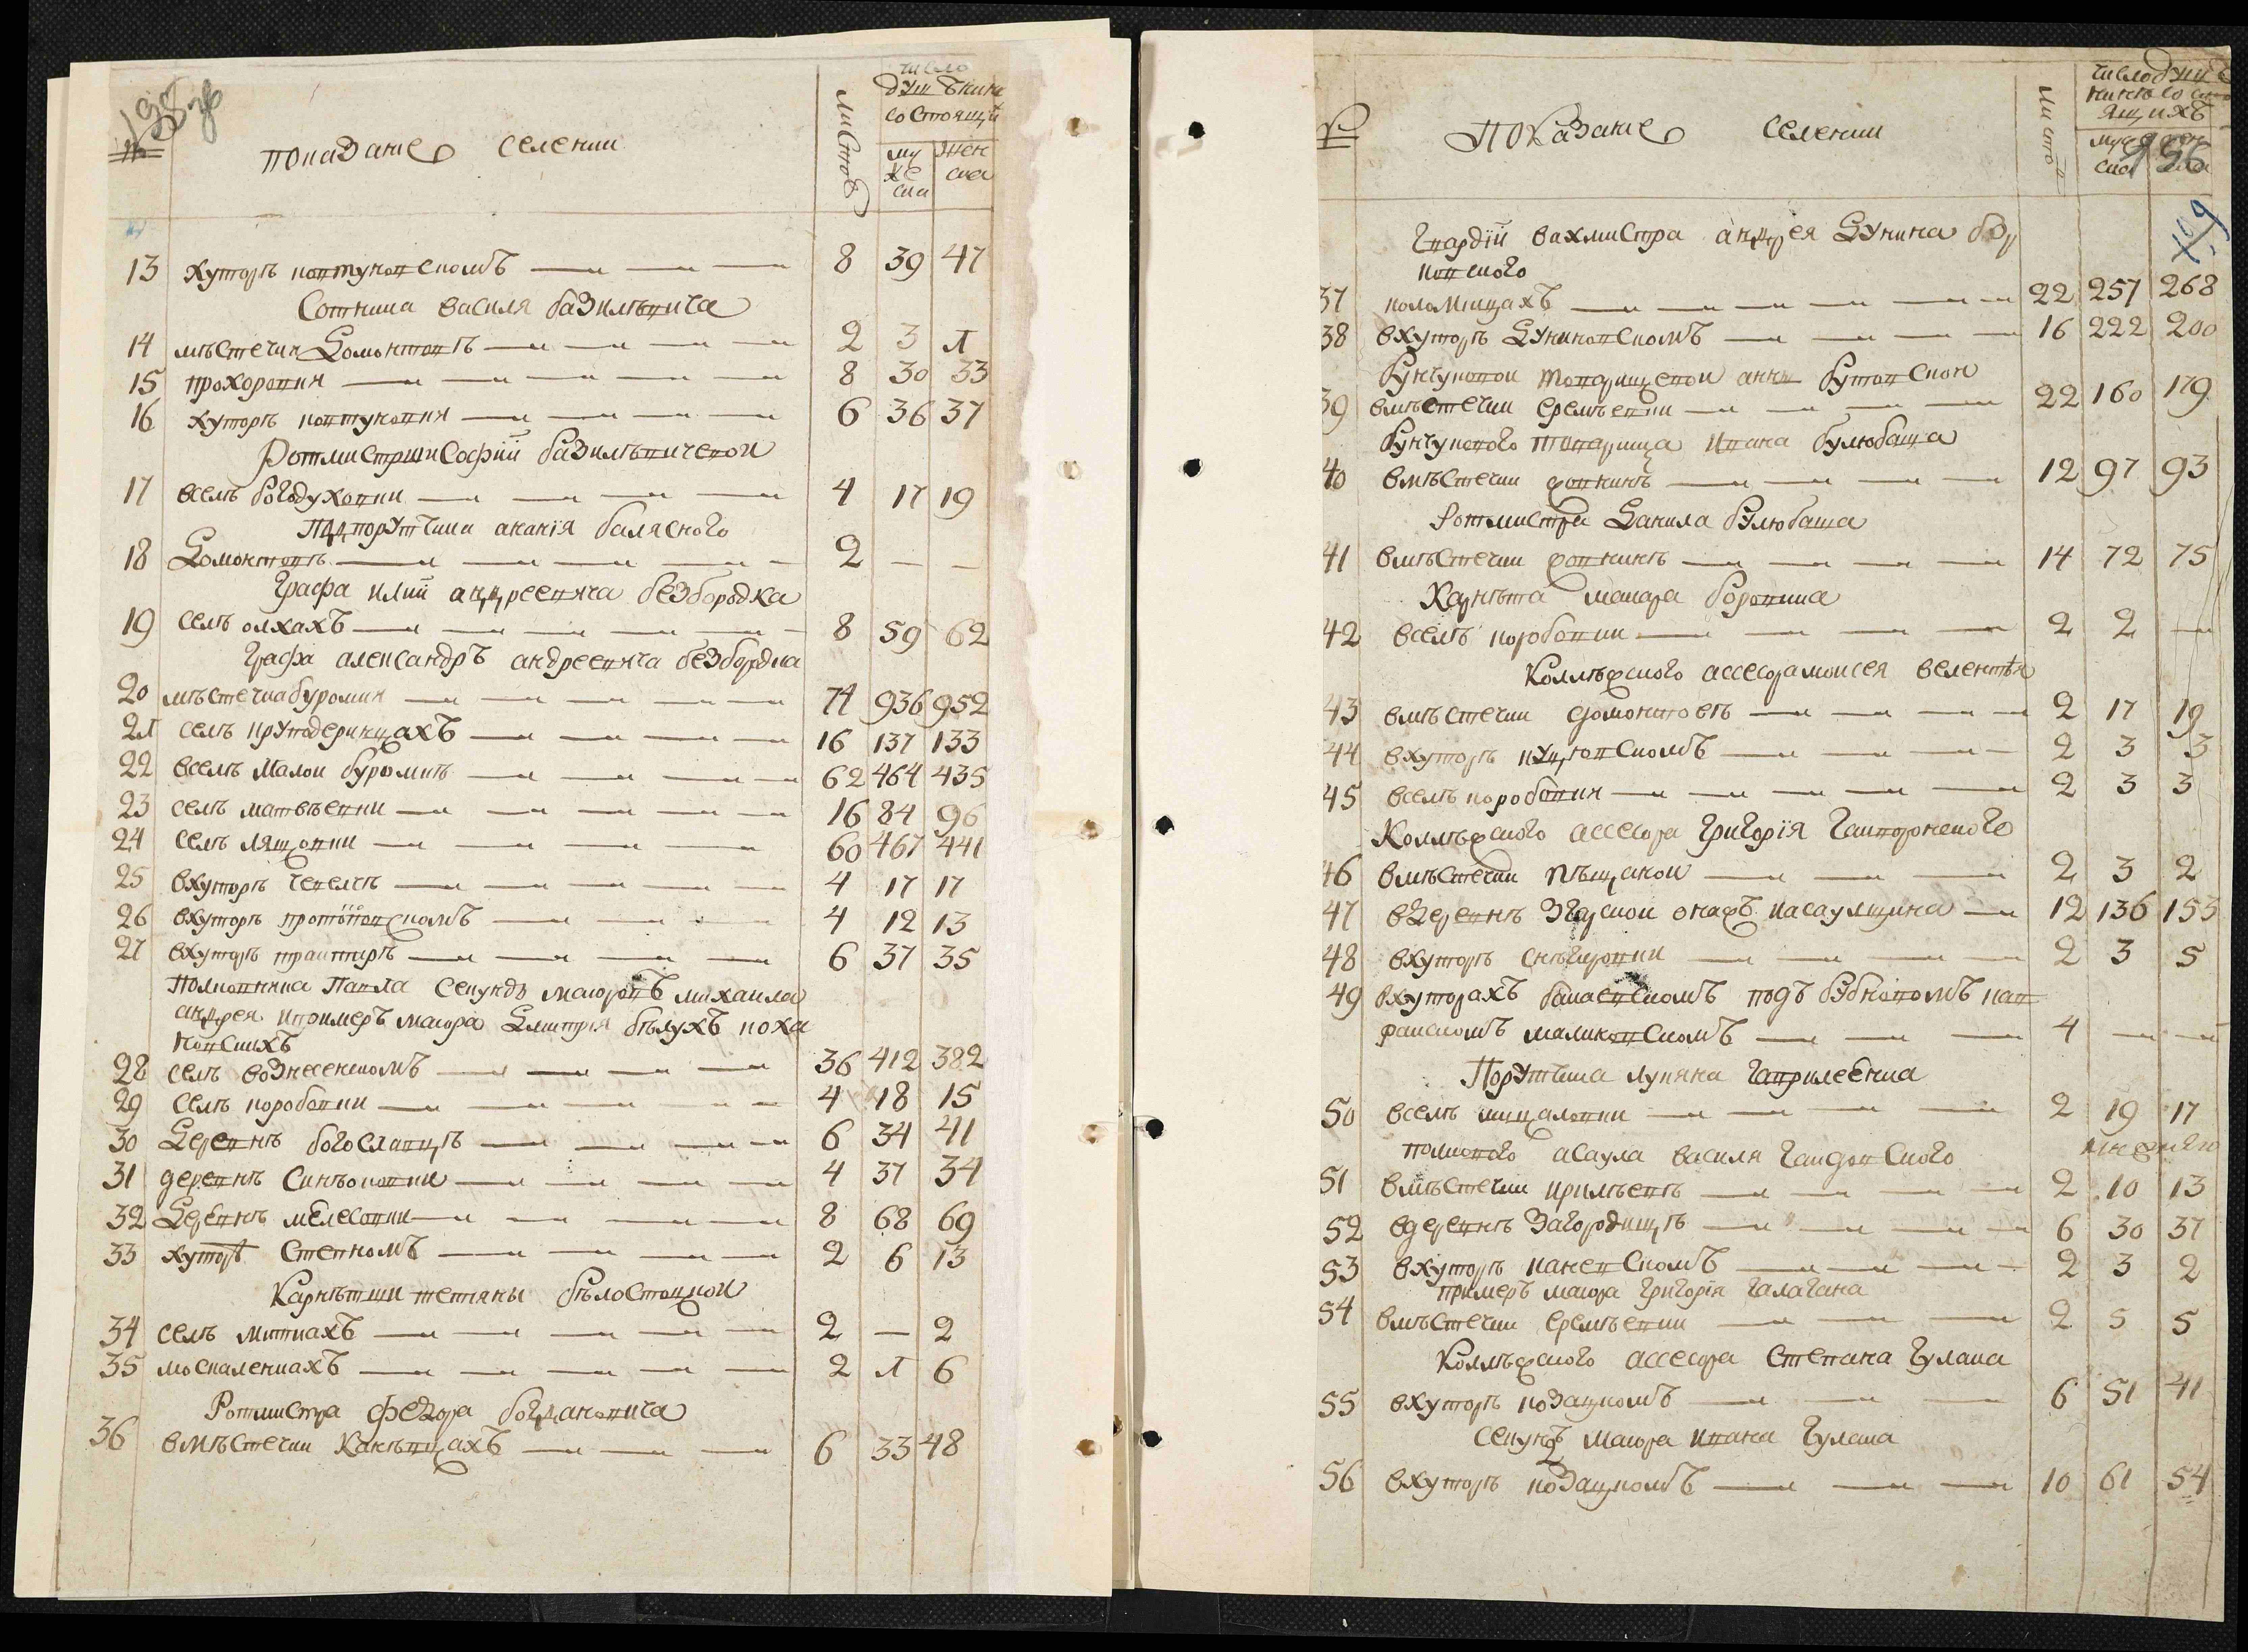 показание селении
листов
число
душ ънине
состоящи
муже ска
жен ска
13 хуторѣ ковтуновскомъ 8 39 47
Сотника василя базилѣвича
14 мѣстечки домонтовѣ 2 3 1
15 прохоровки 8 30 33
16 хуторѣ ковтуновки 6 36 37
Ротмистрши Софии базилѣвичевои
17 вселѣ богодуховки 4 17 19
Підпорутчика анания балясного
18 Домонтовѣ 2 — —
Графа илии андреевича безбородка
19 селѣ олхахъ 8 59 62
Графа александръ андреевича безбородка
20 мѣстечка буромки 74 936 952
21 селѣ крутодеринцахъ 16 137 133
22 вселѣ малои буромкѣ 62 464 435
23 селѣ матвѣевки 16 84 96
24 селѣ лящовки 60 467 441
25 вхуторѣ чевелчѣ 4 17 17
26 вхуторѣ скомъ 4 12 13
27 вхуторѣ трактирѣ 6 37 35
Полковника Павла секундъ маиоровъ михаила
андрея ипримеръ маиора Дмитрия бѣлухъ коха
новскихъ
28 селѣ вознесенскомъ 36 412 382
29 селѣ коробовки 4 18 15
30 Деревнѣ богославцѣ 6 34 41
31 деревнѣ Синѣоковки 4 37 34
32 Деревнѣ мелесовки 8 68 69
33 хуторѣ Степномъ 2 6 13
Карнѣтши тетяны бѣлостоцкои
34 селѣ миткахъ 2 — 2
35 москаленкахъ 2 1 6
Ротмистра Федора богдановича
36 вмѣстечки Канѣвцахъ 6 33 48
№ Показание селении
листо
число душъ
нинѣ состо
ящихъ
156
Гвардіи вахмистра андрея Дунина бор
ковского
37 коломицахъ 22 257 268
38 вхуторѣ Дуниновскомъ 16 222 200
бунчуковои товарищевои анны бутовскои
39 вмѣстечки еремѣевки 22 160 179
бунчукового товарища ивана булюбаша
40 вмѣстечки жовнинѣ 12 97 93
Ротмистра Данила булюбаша
41 вмѣстечки жовнинѣ 14 72 75
Карнѣта макара боровика
42 вселѣ коробовки 2 2 —
Коллѣжского ассесора моисея велентѣя
43 вмѣстечки домонтовѣ 2 17 19
44 вхуторѣ куцковскомъ 2 3 3
45 вселѣ коробовки 2 3 3
Коллѣжского ассесора Григорія Гаипороненого
46 вмѣстечки пѣщаной 2 3 2
47 вдеревнѣ Згарскои онажъ касаулщина 12 136 153
48 вхуторѣ снѣгировки 2 3 5
49 вхуторахъ бакаевскомъ подъ бубновомъ кав
раискомъ маликовскомъ 4 — —
Порутчика лукяна гаврилеенка
50 вселѣ мицаловки 2 19 17
полкового асаула василя Гаидовского
51 вмѣстечки ирклѣевѣ 2 10 13
52 вдеревнѣ Загородищѣ 6 30 37
53 вхуторѣ каневскомъ 2 3 2
примеръ маиора Григория галагана
54 вмѣстечки еремѣевки 2 5 5
Коллѣжского ассесора Степана Гулака
55 вхуторѣ козацкомъ 6 51 41
секундъ маиора ивана Гулака
56 вхуторѣ козацкомъ 10 61 54